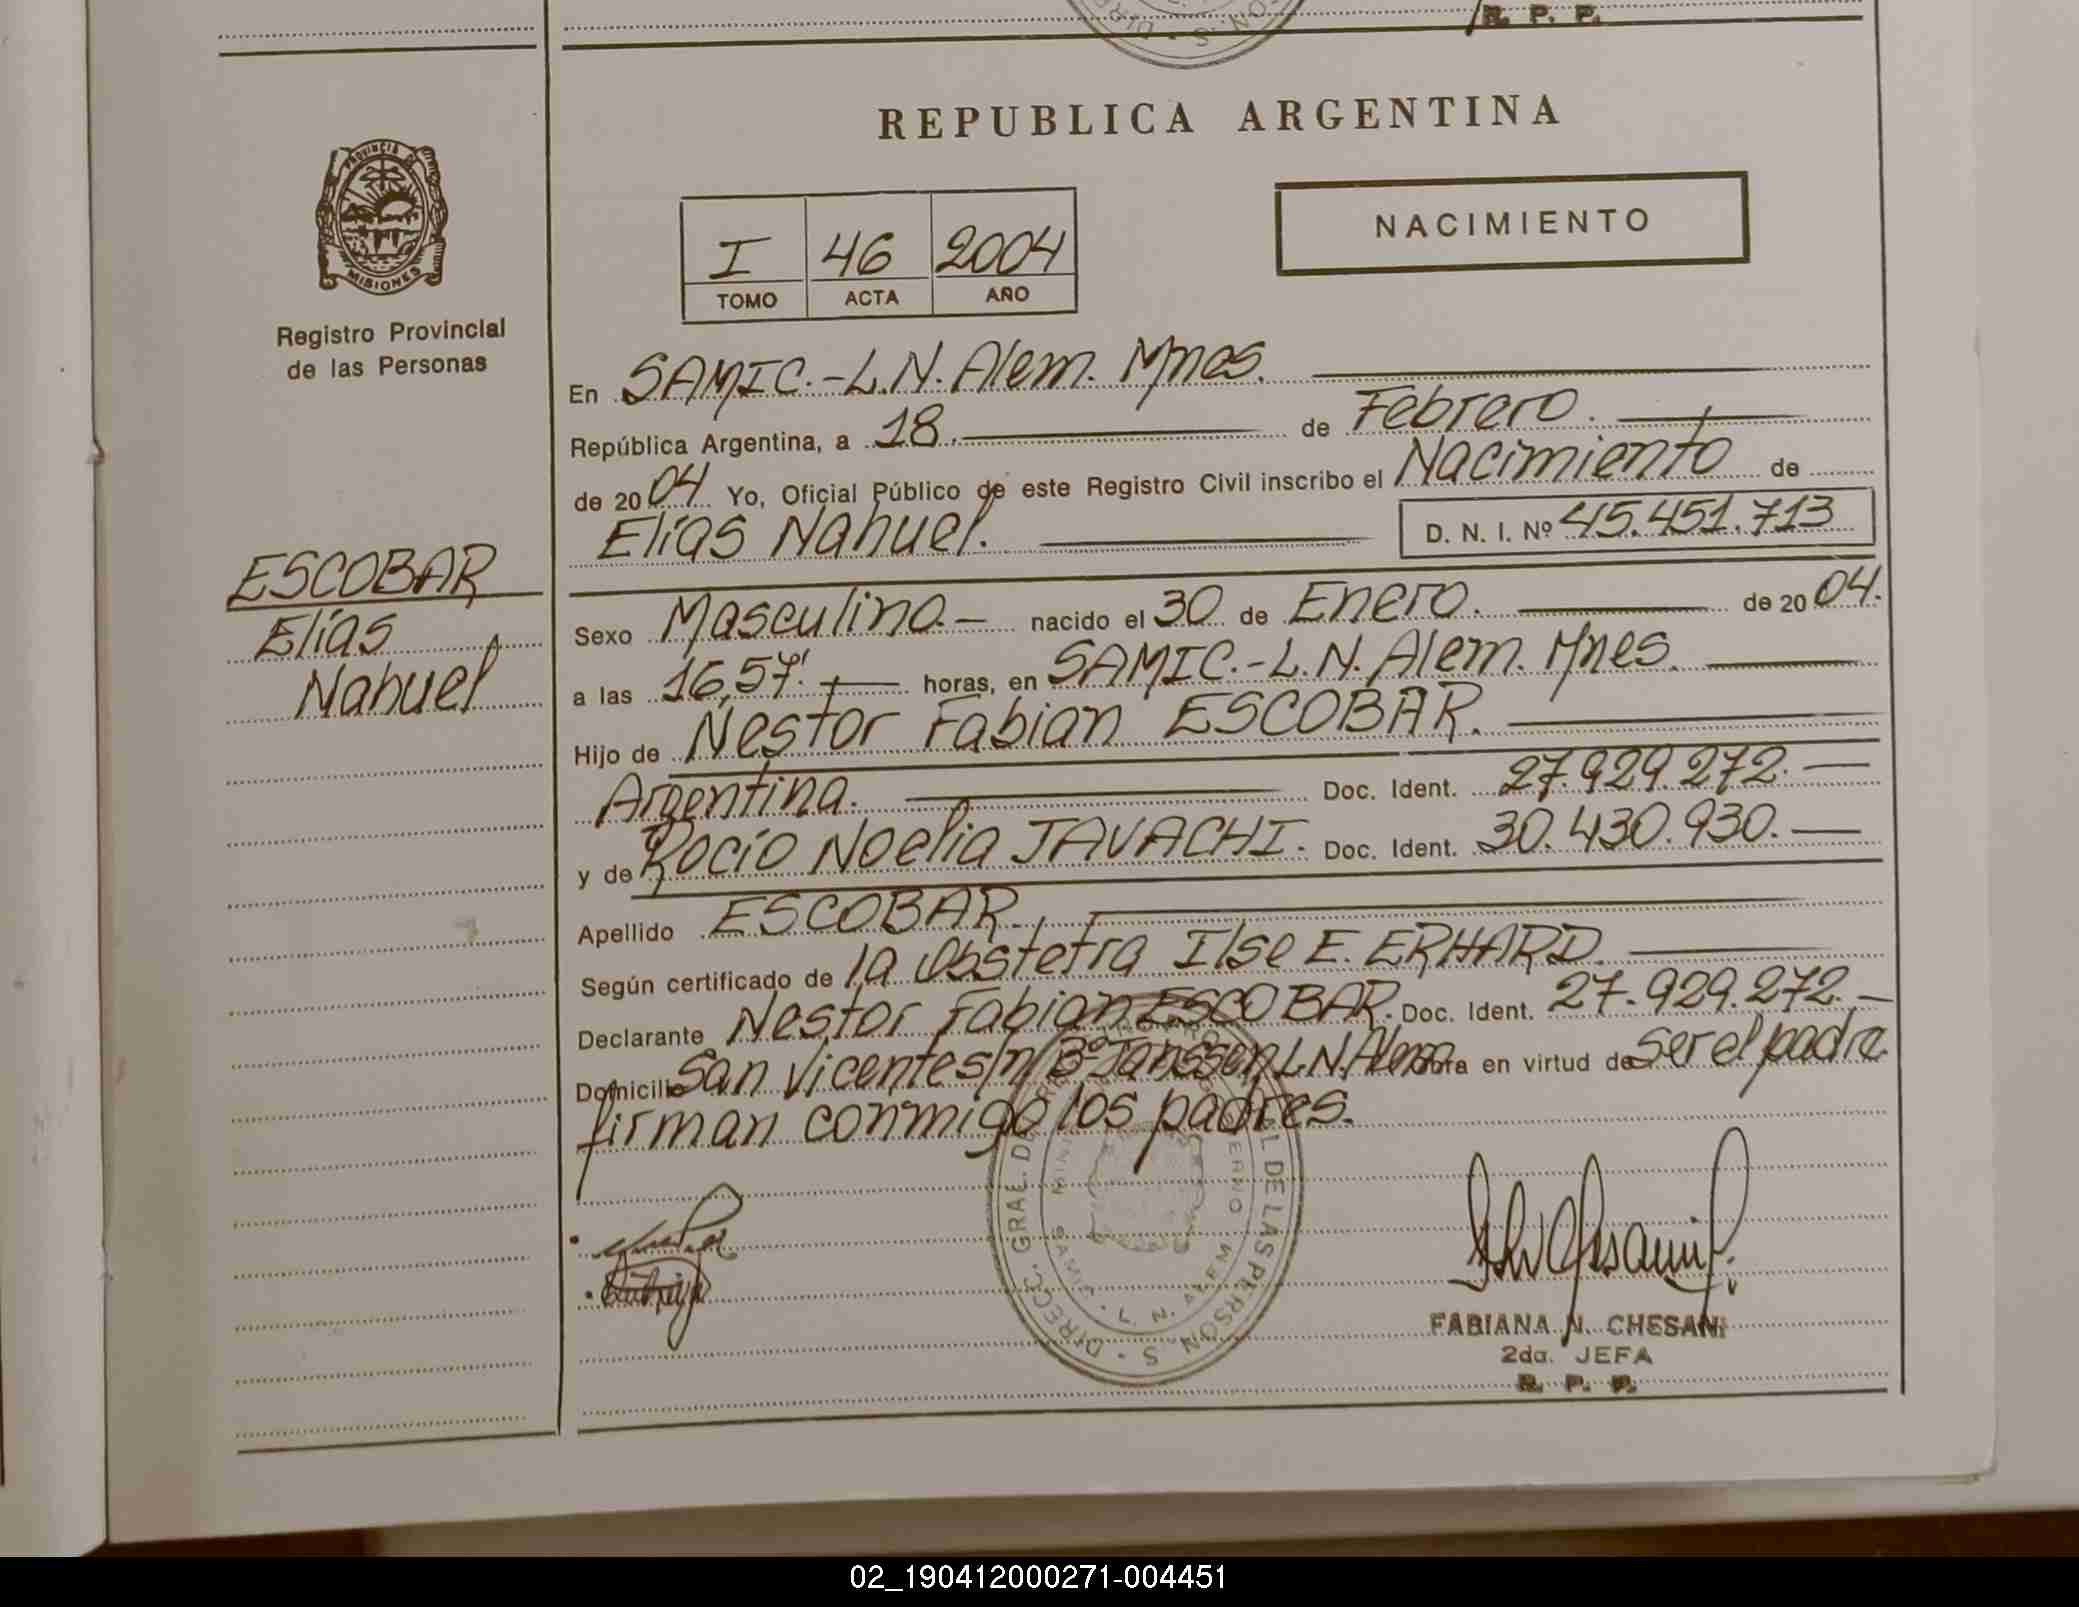 R. P. P.
REPUBLICA ARGENTINA
PROVINCIA DE
MISIONES
Registro Provincial
de las Personas
I 46 2004
TOMO ACTA AÑO
NACIMIENTO
En SAMIC.-L.N. Alem. Mnes.
República Argentina, a 18. de Febrero.
de 2004 Yo, Oficial Público de este Registro Civil inscribo el Nacimiento de
Elías Nahuel. D. N. I. Nº 45.451.713
ESCOBAR
Elías
Nahuel
Sexo Masculino.- nacido el 30 de Enero. de 2004.
a las 16,57'. horas, en SAMIC.-L.N. Alem. Mnes.
Hijo de Nestor Fabian ESCOBAR.
Argentina. Doc. Ident. 27.929.272.
y de Rocío Noelia JAVACHI. Doc. Ident. 30.430.930.
Apellido ESCOBAR.
Según certificado de la Obstetra Ilse E. ERHARD.
Declarante Nestor Fabian ESCOBAR. Doc. Ident. 27.929.272.
Domicilio San Vicente s/n Bº Janssen, L.N. Alem obra en virtud de ser el padre
firman conmigo los padres.
DIRECC. GRAL. DEL DE LAS PERSON S
SAMIC - L. N. ALEM
FABIANA N. CHESANI
2da. JEFA
R. P. P.
02_190412000271-004451